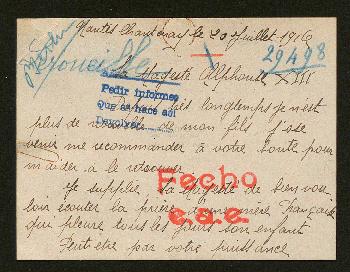 Nantes Chantenay le 20 Juillet 1916
29498
Majesté Alphonse XIII
Pedir informes
Que se hace así
Devolver
longtemps je n'est
plus de nouvelles de mon fils j'ose
venir me recommander à votre bonté pour
m'aider à le retrouver
Fecho
Je supplie Sa Majesté de bien vou
loir écouter la prière d'une mère française
e.a.e.
qui pleure tous les jours son enfant
Peut être par votre puissance